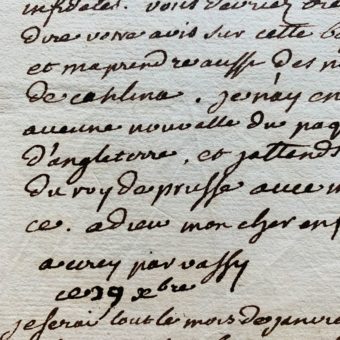 infideles. vous devriez bie
dire votre avis sur cette b
et maprendre aussi des n
de catilina. je n'ay en
aucune nouvelle du paq
d'angleterre, et j'attends
du roy de prusse avec im
ce. adieu mon cher enf
a cirey par vassy
ce 29 xbre
je serai tout le mois de janvie